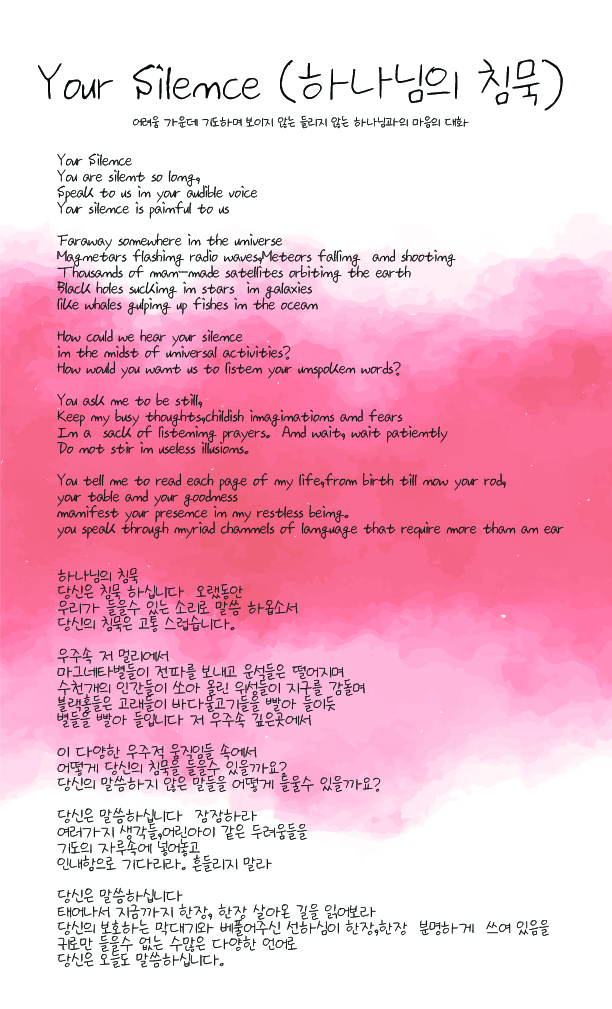 Your Silence (하나님의 침묵)
어려움 가운데 기도하며 보이지 않는 들리지 않는 하나님과의 마음의 대화
Your Silence
You are silent so long,
Speak to us in your audible voice
Your silence is painful to us
Faraway somewhere in the universe
Magnetars flashing radio waves,Meteors falling and shooting
Thousands of man-made satellites orbiting the earth
Black holes sucking in stars in galaxies
like whales gulping up fishes in the ocean
How could we hear your silence
in the midst of universal activities?
How would you want us to listen your unspoken words?
You ask me to be still,
Keep my busy thoughts,childish imaginations and fears
In a sack of listening prayers. And wait, wait patiently
Do not stir in useless illusions.
You tell me to read each page of my life,from birth till now your rod,
your table and your goodness
manifest your presence in my restless being.
you speak through myriad channels of language that require more than an ear
하나님의 침묵
당신은 침묵 하십니다 오랬동안
우리가 들을수 있는 소리로 말씀 하옵소서
당신의 침묵은 고통 스럽습니다.
우주속 저 멀리에서
마그네타별들이 전파를 보내고 운석들은 떨어지며
수천개의 인간들이 쏘아 올린 위성들이 지구를 감돌며
블랙홀들은 고래들이 바다물고기들을 빨아 들이듯
별들을 빨아 들입니다 저 우주속 깊은곳에서
이 다양한 우주적 움직임들 속에서
어떻게 당신의 침묵을 들을수 있을까요?
당신의 말씀하지 않은 말들을 어떻게 들을수 있을까요?
당신은 말씀하십니다 잠잠하라
여러가지 생각들,어린아이 같은 두려움들을
기도의 자루속에 넣어놓고
인내함으로 기다리라. 흔들리지 말라
당신은 말씀하십니다
태어나서 지금까지 한장, 한장 살아온 길을 읽어보라
당신의 보호하는 막대기와 베풀어주신 선하심이 한장,한장 분명하게 쓰여 있음을
귀로만 들을수 없는 수많은 다양한 언어로
당신은 오늘도 말씀하십니다.